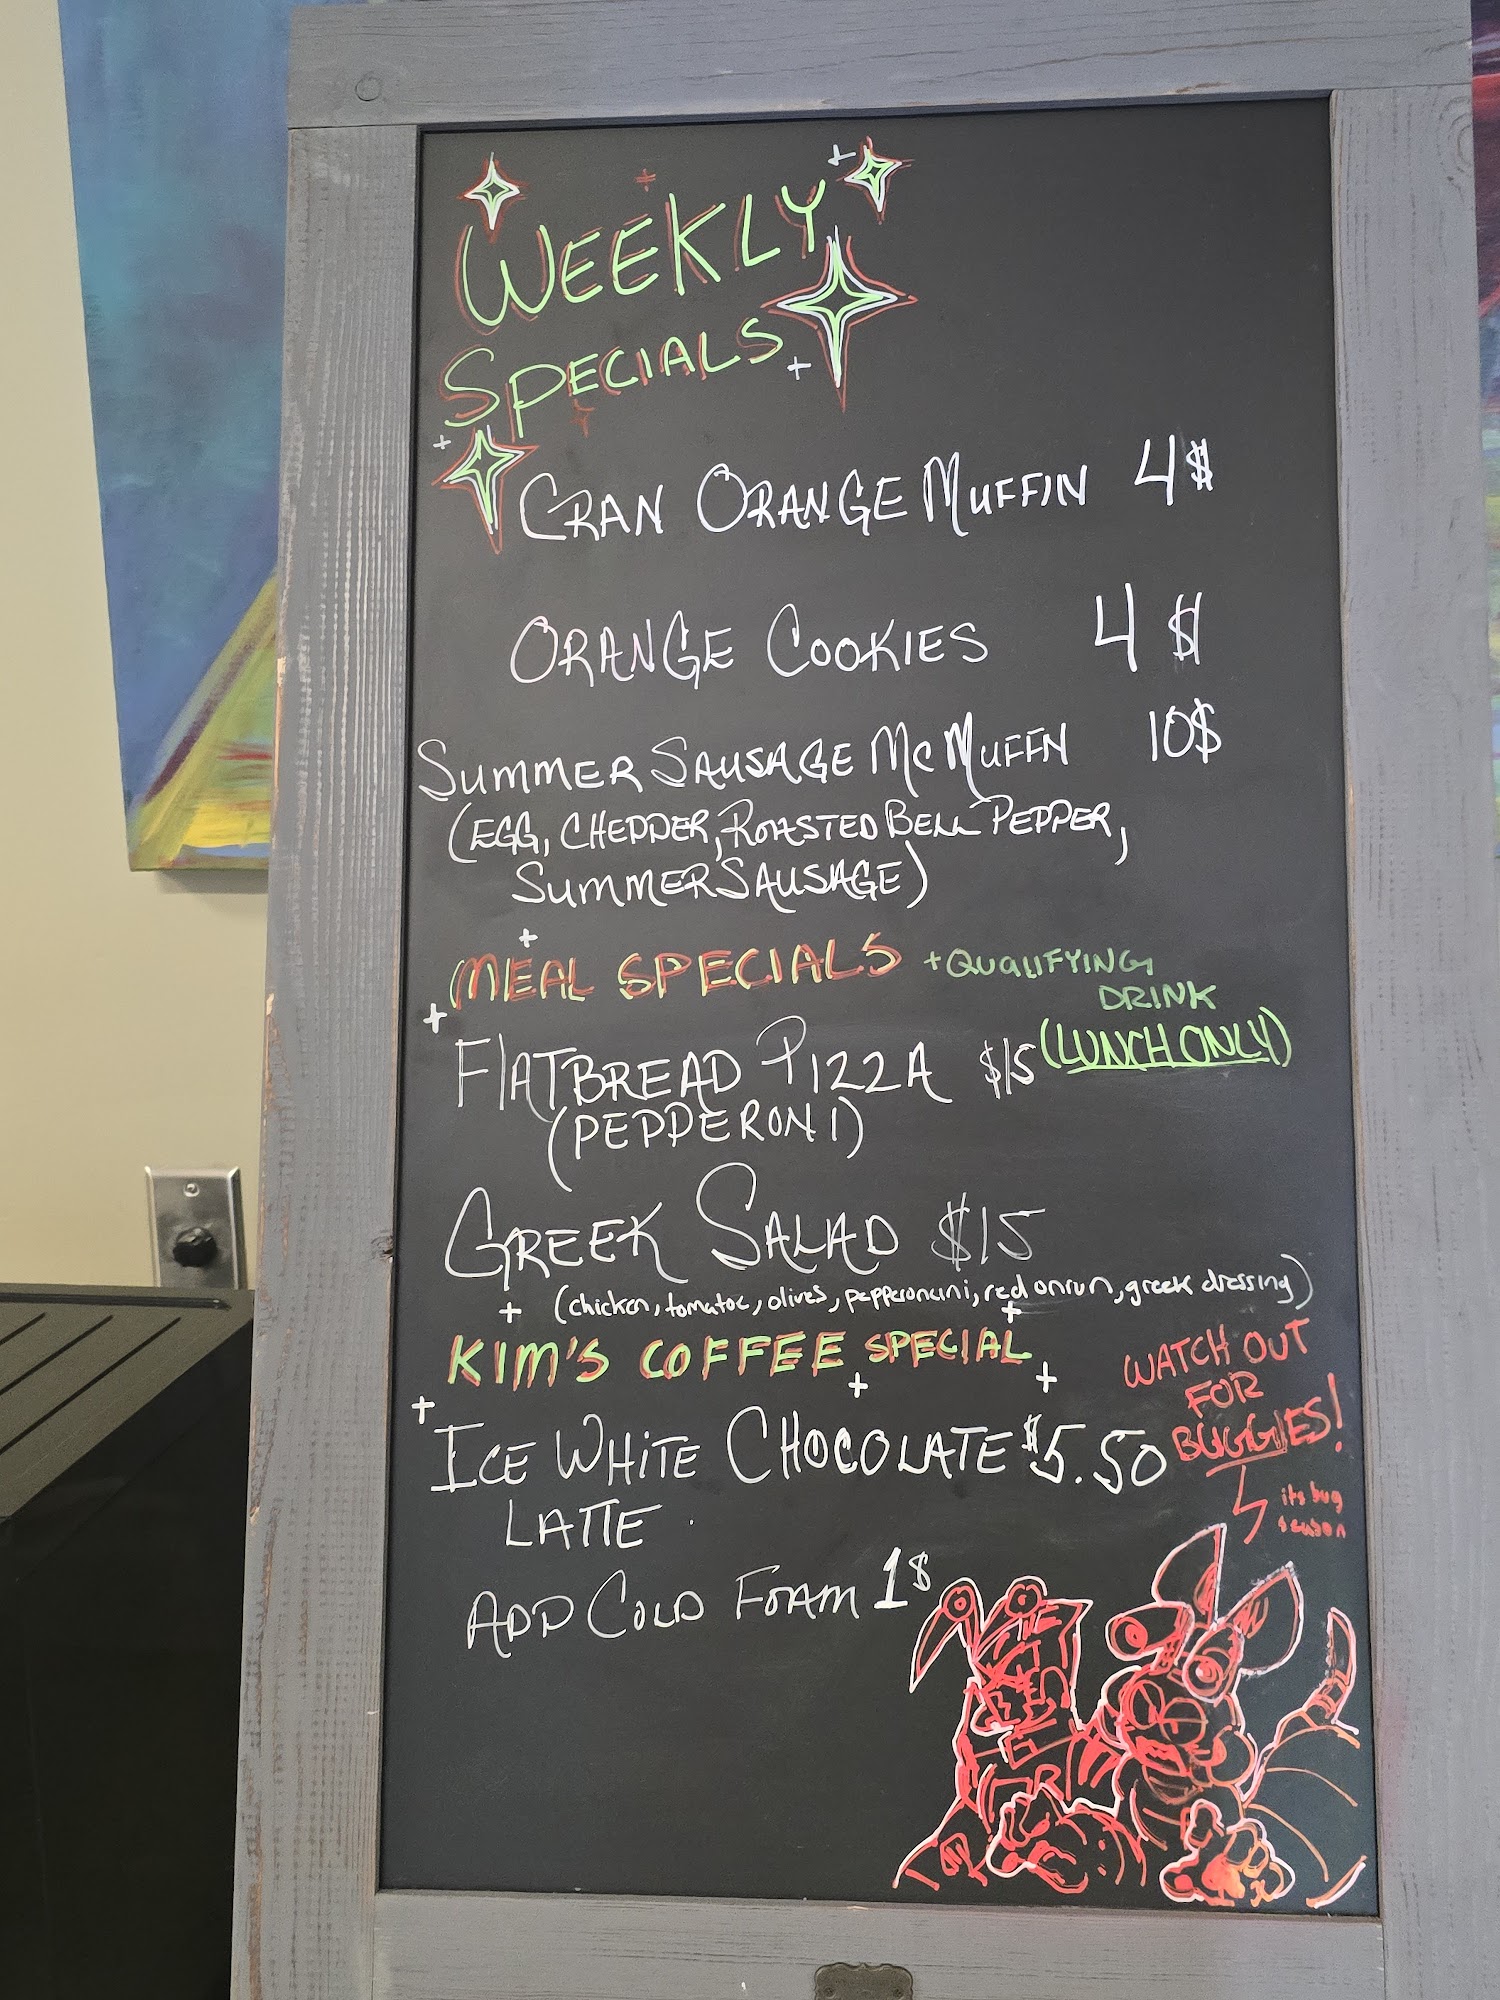 WEEKLY
SPECIALS
CRAN ORANGE MUFFIN 4$
ORANGE COOKIES 4$
SUMMER SAUSAGE MCMUFFN 10$
(EGG, CHEDDER, ROASTED BELL PEPPER,
SUMMER SAUSAGE)
MEAL SPECIALS + QUALIFYING
DRINK
(LUNCH ONLY)
FlATBREAD PIZZA $15
(PEPPERONI)
GREEK SALAD $15
(chicken, tomatoe, olives, pepperoncini, red onion, greek dressing)
KIM'S COFFEE SPECIAL
WATCH OUT
FOR
BUGGIES!
its bug
season
ICE WHiTE CHOCOLATE $5.50
LATTE
ADD COLD FOAM 1$